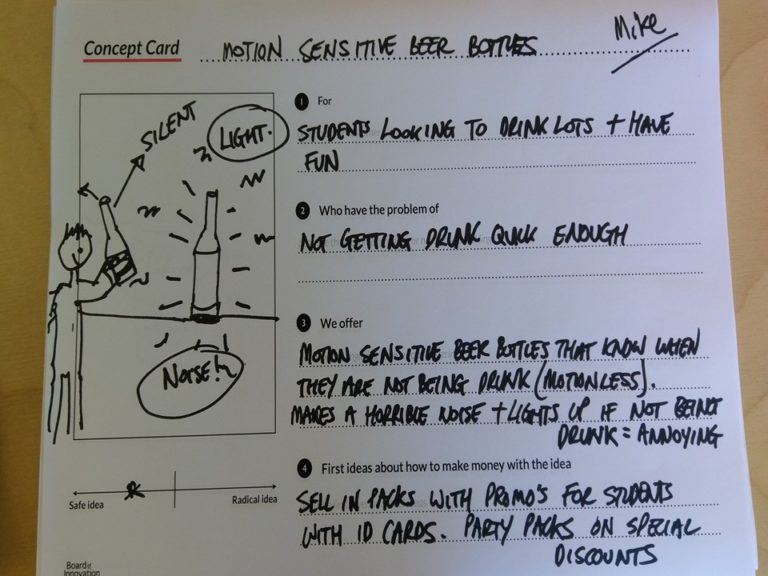 Concept Card MOTION SENSITIVE BEER BOTTLES Mike
SILENT
LIGHT.
NOISE!
1 For
STUDENTS LOOKING TO DRINK LOTS + HAVE
FUN
2 Who have the problem of
NOT GETTING DRUNK QUICK ENOUGH
3 We offer
MOTION SENSITIVE BEER BOTTLES THAT KNOW WHEN
THEY ARE NOT BEING DRUNK (MOTIONLESS).
MAKES A HORRIBLE NOISE + LIGHTS UP IF NOT BEING
DRUNK = ANNOYING
4 First ideas about how to make money with the idea
SELL IN PACKS WITH PROMO'S FOR STUDENTS
WITH ID CARDS. PARTY PACKS ON SPECIAL
DISCOUNTS
Safe idea Radical idea
Board of
Innovation